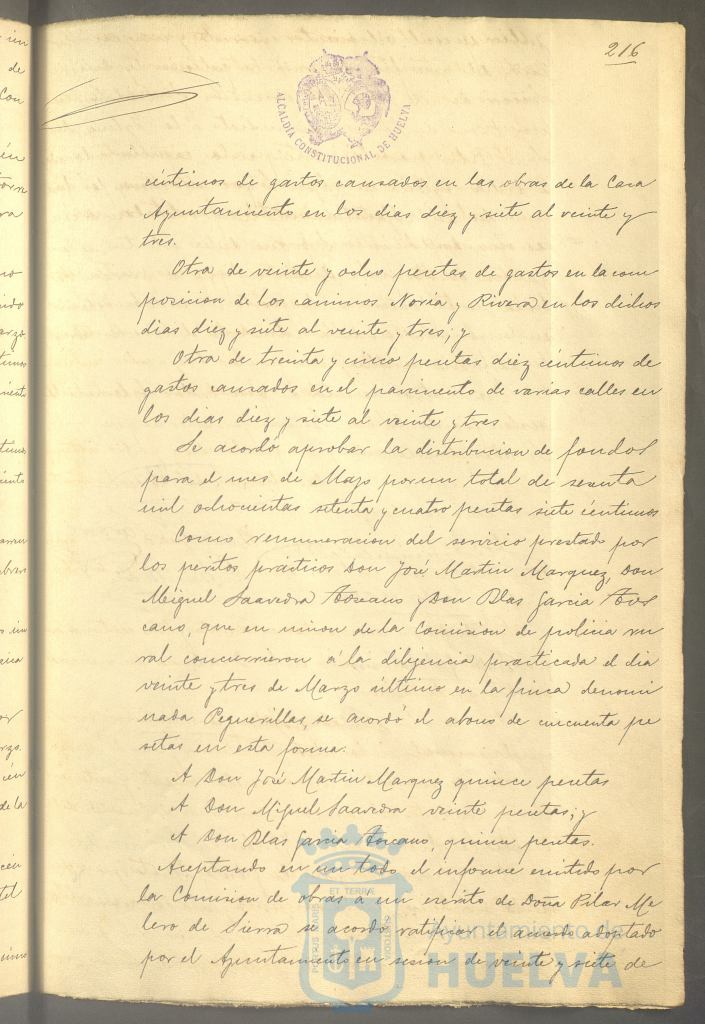 216
ALCALDÍA CONSTITUCIONAL DE HUELVA
céntimos de gastos causados en las obras de la Casa
Ayuntamiento en los dias diez y siete al veinte y
tres.
Otra de veinte y ocho pesetas de gastos en la com
posicion de los caminos Noria y Rivera en los dichos
dias diez y siete al veinte y tres; y
Otra de treinta y cinco pesetas diez céntimos de
gastos causados en el pavimento de varias calles en
los dias diez y siete al veinte y tres
Se acordó aprobar la distribucion de fondos
para el mes de Mayo por un total de sesenta
mil ochocientas setenta y cuatro pesetas siete céntimos
Como remuneracion del servicio prestado por
los peritos prácticos Don José Martin Marquez, Don
Miguel Saavedra Toscano y Don Blas Garcia Tos
cano, que en union de la Comision de policia ru
ral concurrieron á la diligencia practicada el dia
veinte y tres de Marzo último en la finca denomi
nada Peguerillas, se acordó el abono de cincuenta pe
setas en esta forma:
A Don José Martin Marquez quince pesetas
A Don Miguel Saavedra veinte pesetas; y
A Don Blas Garcia Toscano, quince pesetas.
Aceptando en un todo el informe emitido por
la Comision de obras a un escrito de Doña Pilar Me
lero de Sierra se acordó ratificar el acuerdo adoptado
por el Ayuntamiento en sesion de veinte y siete de
PORTUS MARIS ET TERRÆ CUSTODIA
Ayuntamiento de
HUELVA